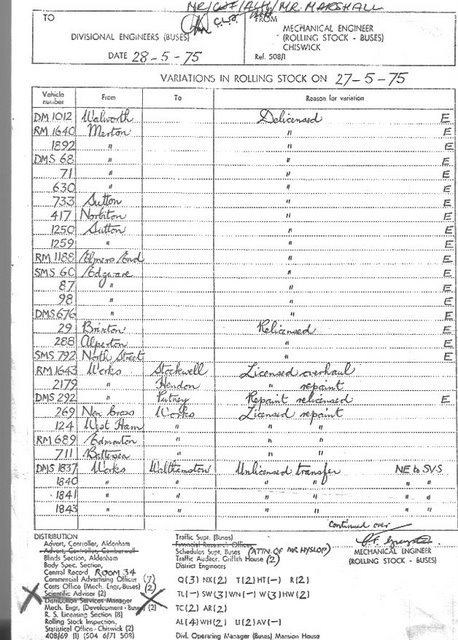 NE/CWF/
MR. MARSHALL
TO
FROM
DIVISIONAL ENGINEERS (BUSES)
MECHANICAL ENGINEER
(ROLLING STOCK - BUSES)
CHISWICK
DATE 28-5-75
Ref. 508/1
VARIATIONS IN ROLLING STOCK ON 27-5-75
Vehicle number From To Reason for variation
DM 1012 Walworth Delicensed E
RM 1640 Merton " E
1892 " " E
DMS 68 " " E
71 " " E
630 " " E
733 Sutton " E
417 Norbiton " E
1250 Sutton " E
1259 " " E
RM 1188 Elmers End " E
SMS 60 Edgware " E
87 " " E
98 " " E
DMS 676 " " E
29 Brixton Relicensed E
288 Alperton " E
SMS 792 North Street " E
RM 1643 Works Stockwell Licensed overhaul
2179 " Hendon " repaint
DMS 292 " Putney Repaint relicensed E
269 New Cross Works Licensed repaint
124 West Ham " " "
RM 689 Edmonton " " "
711 Battersea " " "
DMS 1837 Works Walthamstow Unlicensed transfer NE to SVS
1840 " " " " " "
1841 " " " " " "
1843 " " " " " "
continued over
DISTRIBUTION
Advert. Controller, Aldenham
Advert. Controller, Camberwell
Blinds Section, Aldenham
Body Spec. Section,
Central Record ROOM 34
Commercial Advertising Officer (7)
Costs Office (Mech. Engr. Buses) (2)
Scientific Adviser (2)
Distribution Services Manager
Mech. Engr. (Development - Buses) (2)
R. S. Licensing Section (8)
Rolling Stock Inspection,
Statistical Office - Chiswick (2)
408/69 (1) (504 6/71 508)
Traffic Supt. (Buses)
Financial Research Officer
Schedules Supt. Buses (ATTN. OF MR HYSLOP)
Traffic Auditor, Griffith House (2)
District Engineers
Q(3) NX(2) T(2) HT(-) R(2)
TL(-) SW(3) WN(-) W(3) HW(2)
TC(2) AR(2)
AL(4) WH(2) U(2) AV(-)
Divl. Operating Manager (Buses) Mansion House
MECHANICAL ENGINEER
(ROLLING STOCK - BUSES)